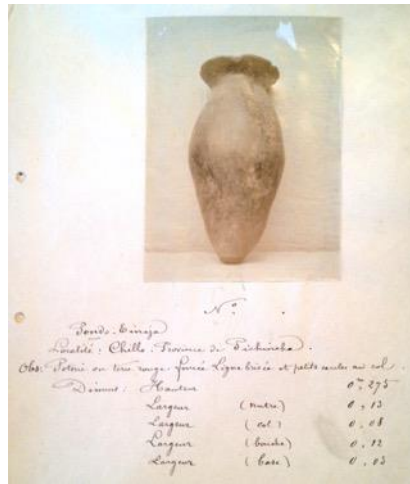 N°
Localité : Chillo : Province de Pichincha .
Obs: Poterie en terre rouge. Ligne brisée et petits au col .
Hauteur 0,m 275
Largeur (ventre) 0, 13
Largeur (col) 0, 08
Largeur (bouche) 0, 12
Largeur (base) 0, 03